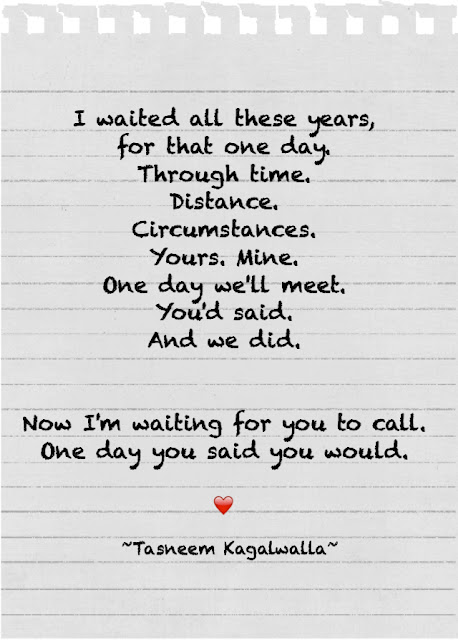 I waited all these years,
for that one day.
Through time.
Distance.
Circumstances.
Yours. Mine.
One day we'll meet.
You'd said.
And we did.
Now I'm waiting for you to call.
One day you said you would.
❤️
~Tasneem Kagalwalla~